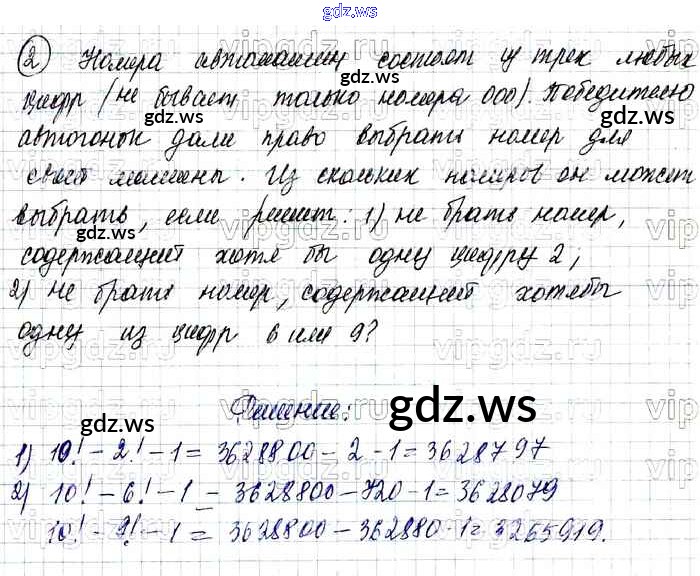 gdz.ws
② Номера автомашин состоят из трех любых
цифр (не бывает только номера 000). Победителю
автогонок дали право выбрать номер для
своей машины. Из скольких номеров он может
выбрать, если решит: 1) не брать номер,
содержащий хотя бы одну цифру 2;
2) не брать номер, содержащий хотябы
одну из цифр 6 или 9?
Решение:
1) 10! - 2! - 1 = 3628800 - 2 - 1 = 3628797
2) 10! - 6! - 1 = 3628800 - 720 - 1 = 3628079
10! - 9! - 1 = 3628800 - 362880 - 1 = 3265919.
gdz.ws
gdz.ws
gdz.ws
gdz.ws
gdz.ws
gdz.ws
gdz.ws
gdz.ws